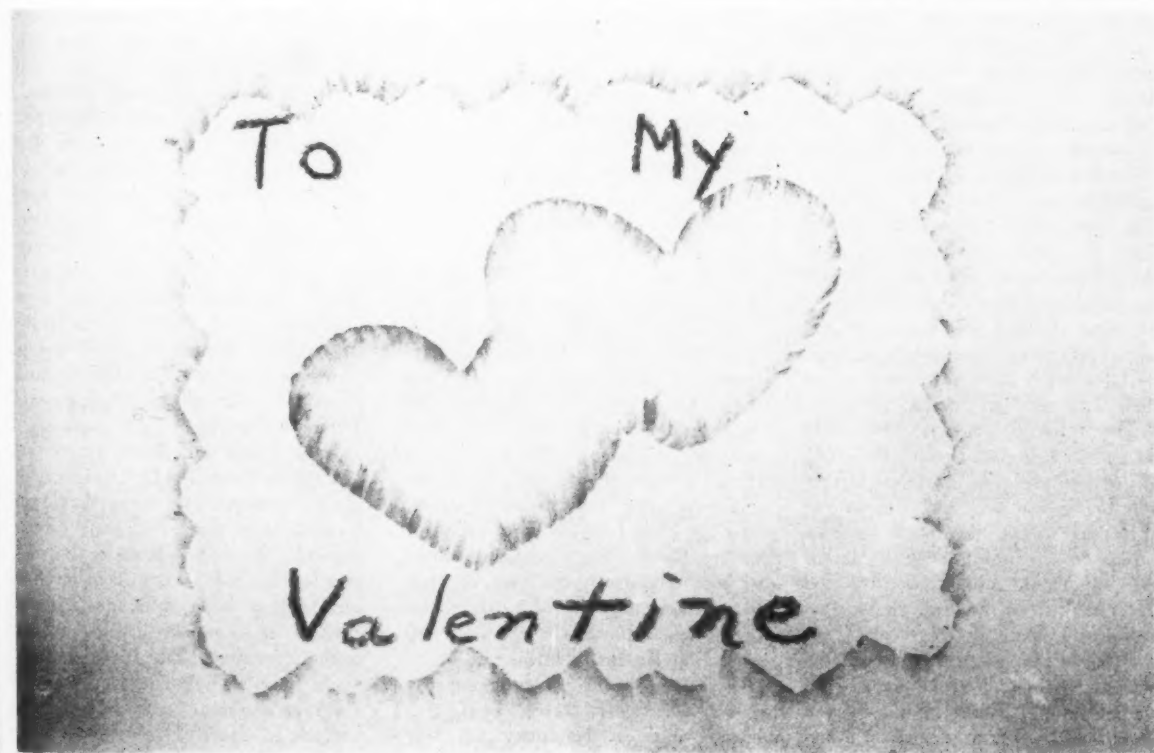 To My
Valentine